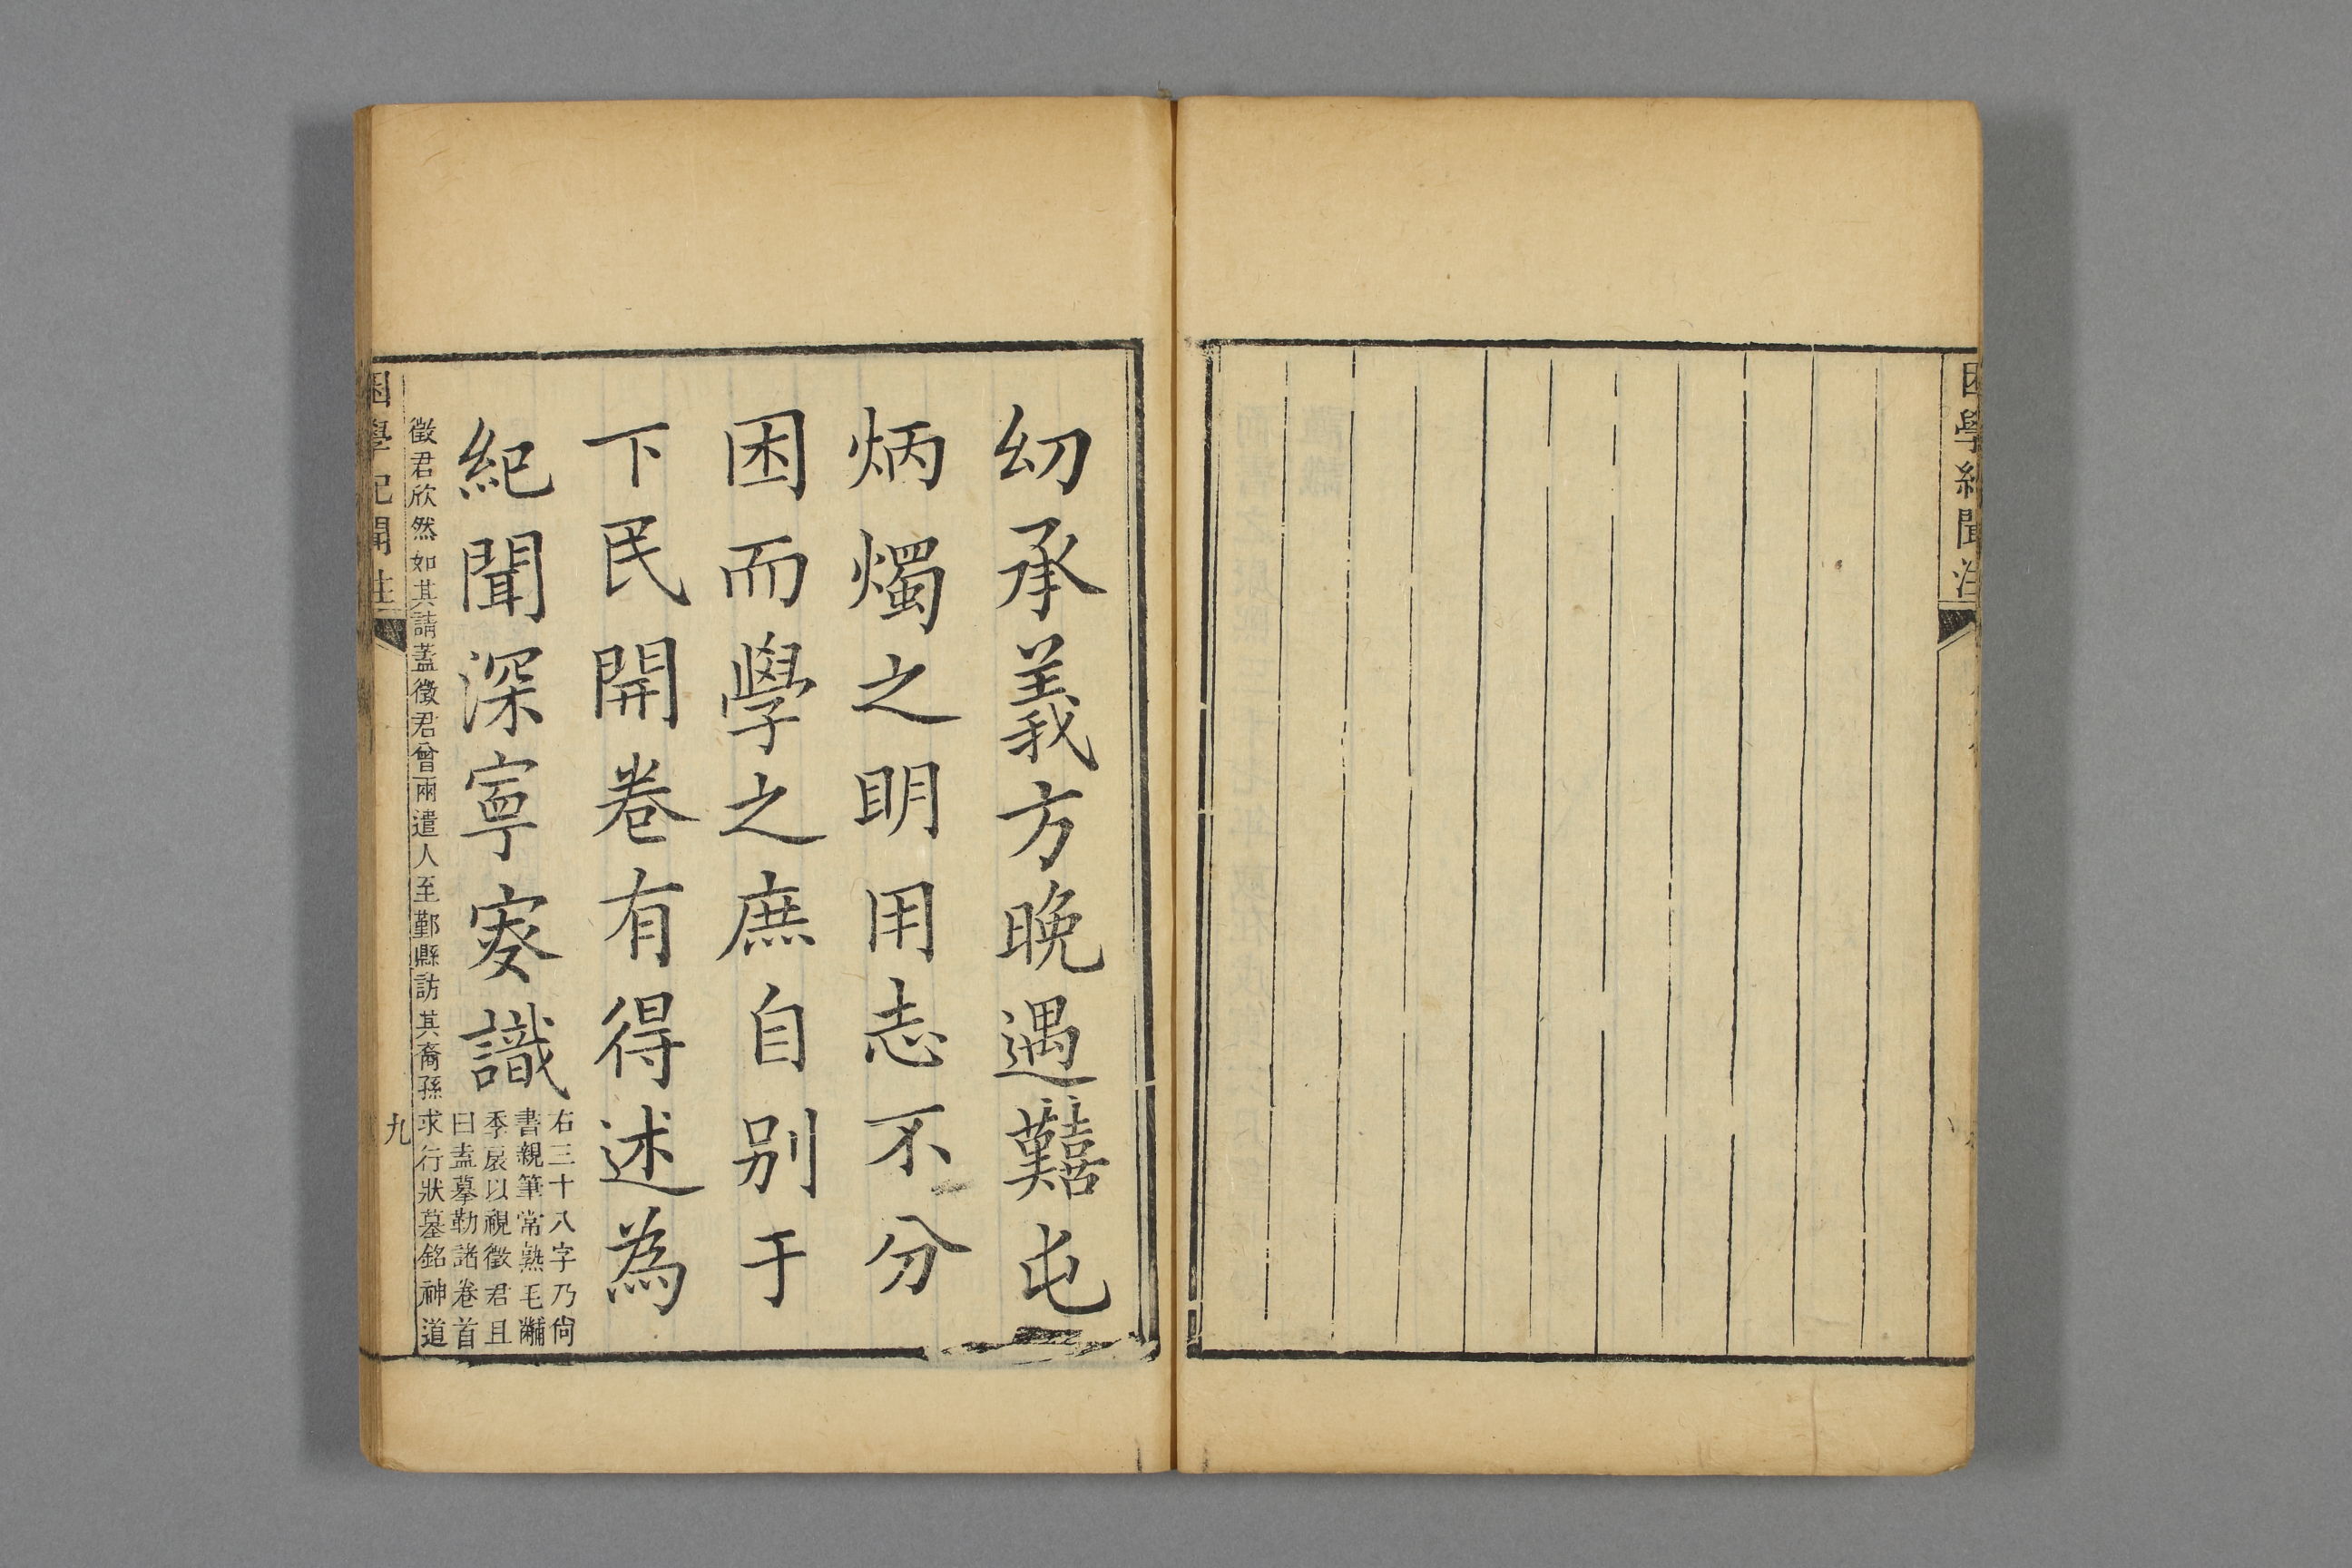 困學紀聞注
㓜承義方晚遇囏屯
炳燭之眀用志不分
困而學之庶自别于
下民開卷有得述為
紀聞深寧叜識
右三十八字乃尙
書親筆常熟毛黼
季扆以視徵君且
曰盍摹勒諸卷首
徵君欣然如其請蓋徵君曾兩遣人至鄞縣訪其裔孫求行狀墓銘神道
困學紀聞注
九